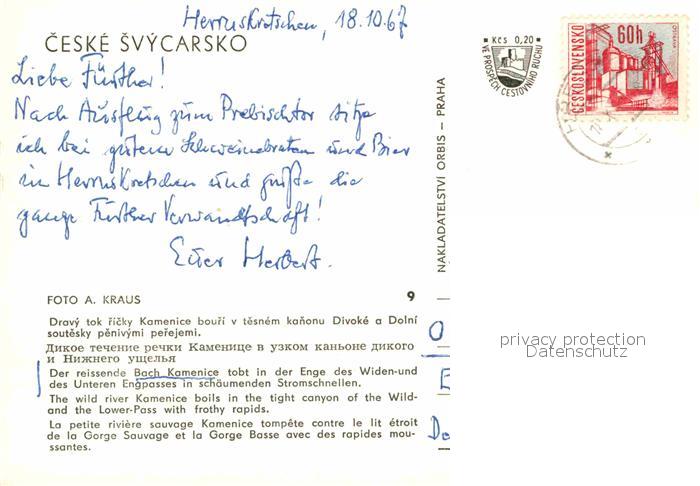 Herrnskretschen, 18.10.67
ČESKÉ ŠVÝCARSKO
Liebe Fürther!
Nach Ausflug zum Prebischtor sitze
ich bei gutem Schweinebraten und Bier
in Herrnskretschen und grüße die
ganze Further Verwandtschaft!
Euer Herbert.
FOTO A. KRAUS 9
Dravý tok říčky Kamenice bouří v těsném kaňonu Divoké a Dolní
soutěsky pěnivými peřejemi.
Дикое течение речки Каменице в узком каньоне дикого
и Нижнего ущелья
Der reissende Bach Kamenice tobt in der Enge des Widen-und
des Unteren Engpasses in schäumenden Stromschnellen.
The wild river Kamenice boils in the tight canyon of the Wild-
and the Lower-Pass with frothy rapids.
La petite rivière sauvage Kamenice tempête contre le lit étroit
de la Gorge Sauvage et la Gorge Basse avec des rapides mou-
ssantes.
NAKLADATELSTVÍ ORBIS – PRAHA
Kčs 0,20
VE PROSPĚCH CESTOVNÍHO RUCHU
ČESKOSLOVENSKO
60h
OSTRAVA
privacy protection
Datenschutz